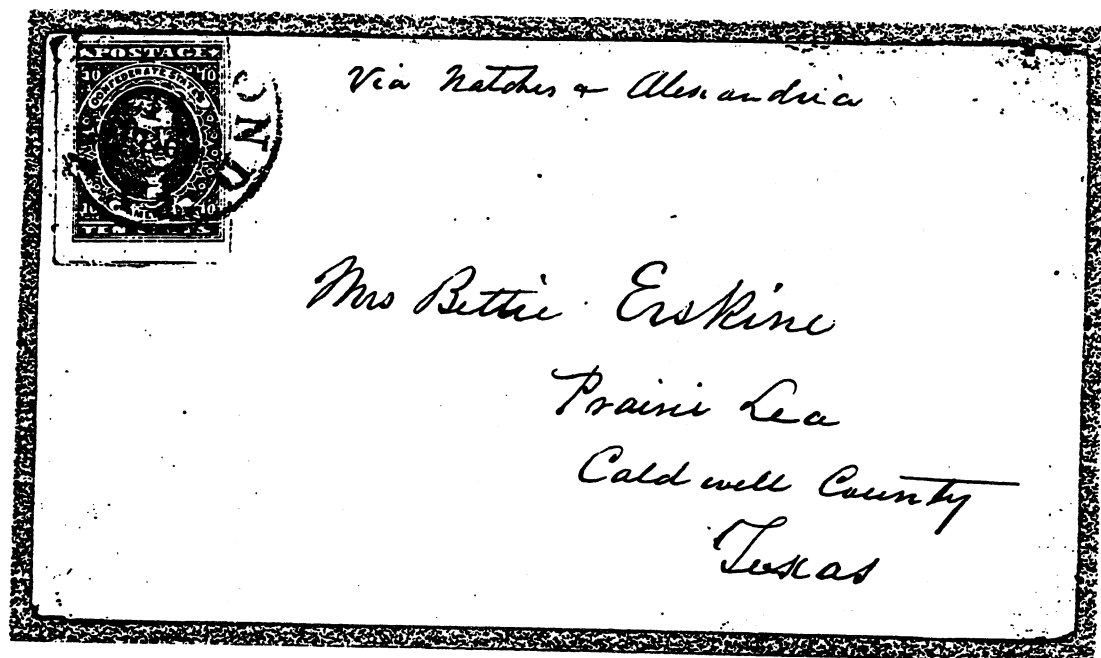 POSTAGE
10 10
CONFEDERATE STATES
10 10
TEN CENTS
OND
Via Natches & Alexandria
Mrs Bettie Erskine
Prairie Lea
Caldwell County
Texas